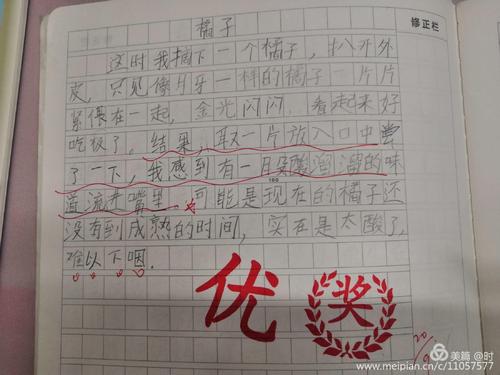 橘子
修正栏
这时我摘下一个橘子，扒开外
皮，只见像月牙一样的橘子一片片
紧偎在一起，金光闪闪，看起来好
吃极了。结果，取一片放入口中尝
了一下，我感到有一股酸溜溜的味
道流进嘴里，可能是现在的橘子还
没有到成熟的时间，实在是太酸了，
难以下咽.
优
奖
20
美篇 @时
www.meipian.cn/c/11057577